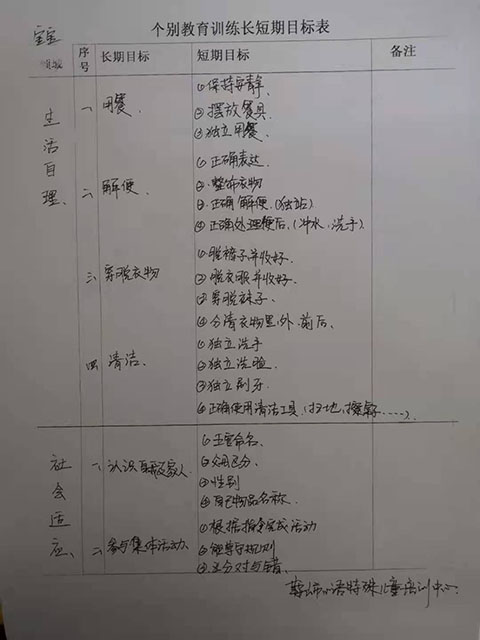 个别教育训练长短期目标表
宝宝
序号 长期目标 短期目标 备注
生活自理、
一、用餐、
①保持安静、
②摆放餐具
③独立用餐、
二、解便、
①正确表达、
②整饰衣物
③正确解便、(独站)
④正确处理便后、(冲水、洗手)
三、穿脱衣物
①脱裤子并收好、
②脱衣服并收好、
③穿脱袜子、
④分清衣物里外、前后、
四、清洁、
①独立洗手
②独立洗脸、
③独立刷牙
④正确使用清洁工具(扫地、擦桌子……)
社会适应、
一、认识 家人
命名、
区分、
③性别
④ 物品名称、
二、参与集体活动、
①根据指令完成活动
②能遵守规则
③区分对与错
心语特殊儿童培训中心